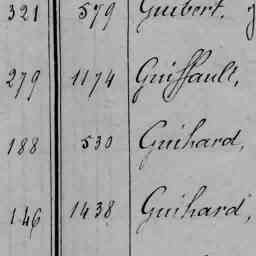 321 579 Guibert,
279 1174 Guiffault,
188 530 Guihard,
146 1438 Guihard,